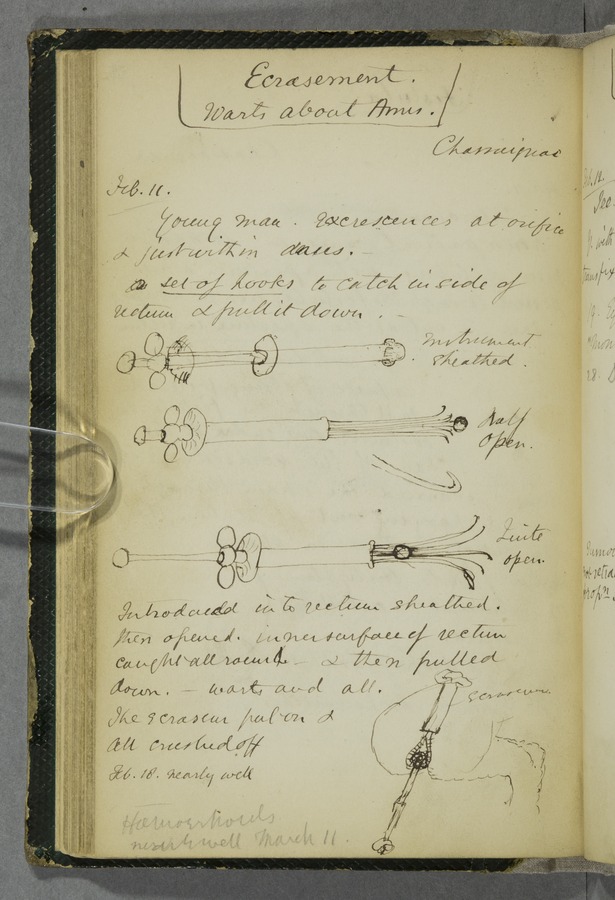 Ecrasement.
Warts about Anus.
Chassaignac
Feb. 11.
Young man. Excrescences at orifice
& just within anus. —
a set of hooks to catch inside of
rectum & pull it down. —
Instrument
sheathed.
Half
open.
Quite
open.
Introduced into rectum sheathed.
then opened. inner surface of rectum
caught all round — & then pulled
down. — warts and all.
ecraseur
The ecraseur put on &
all crushed off
Feb. 18. nearly well
Hæmorrhoids
nearly well March 11.